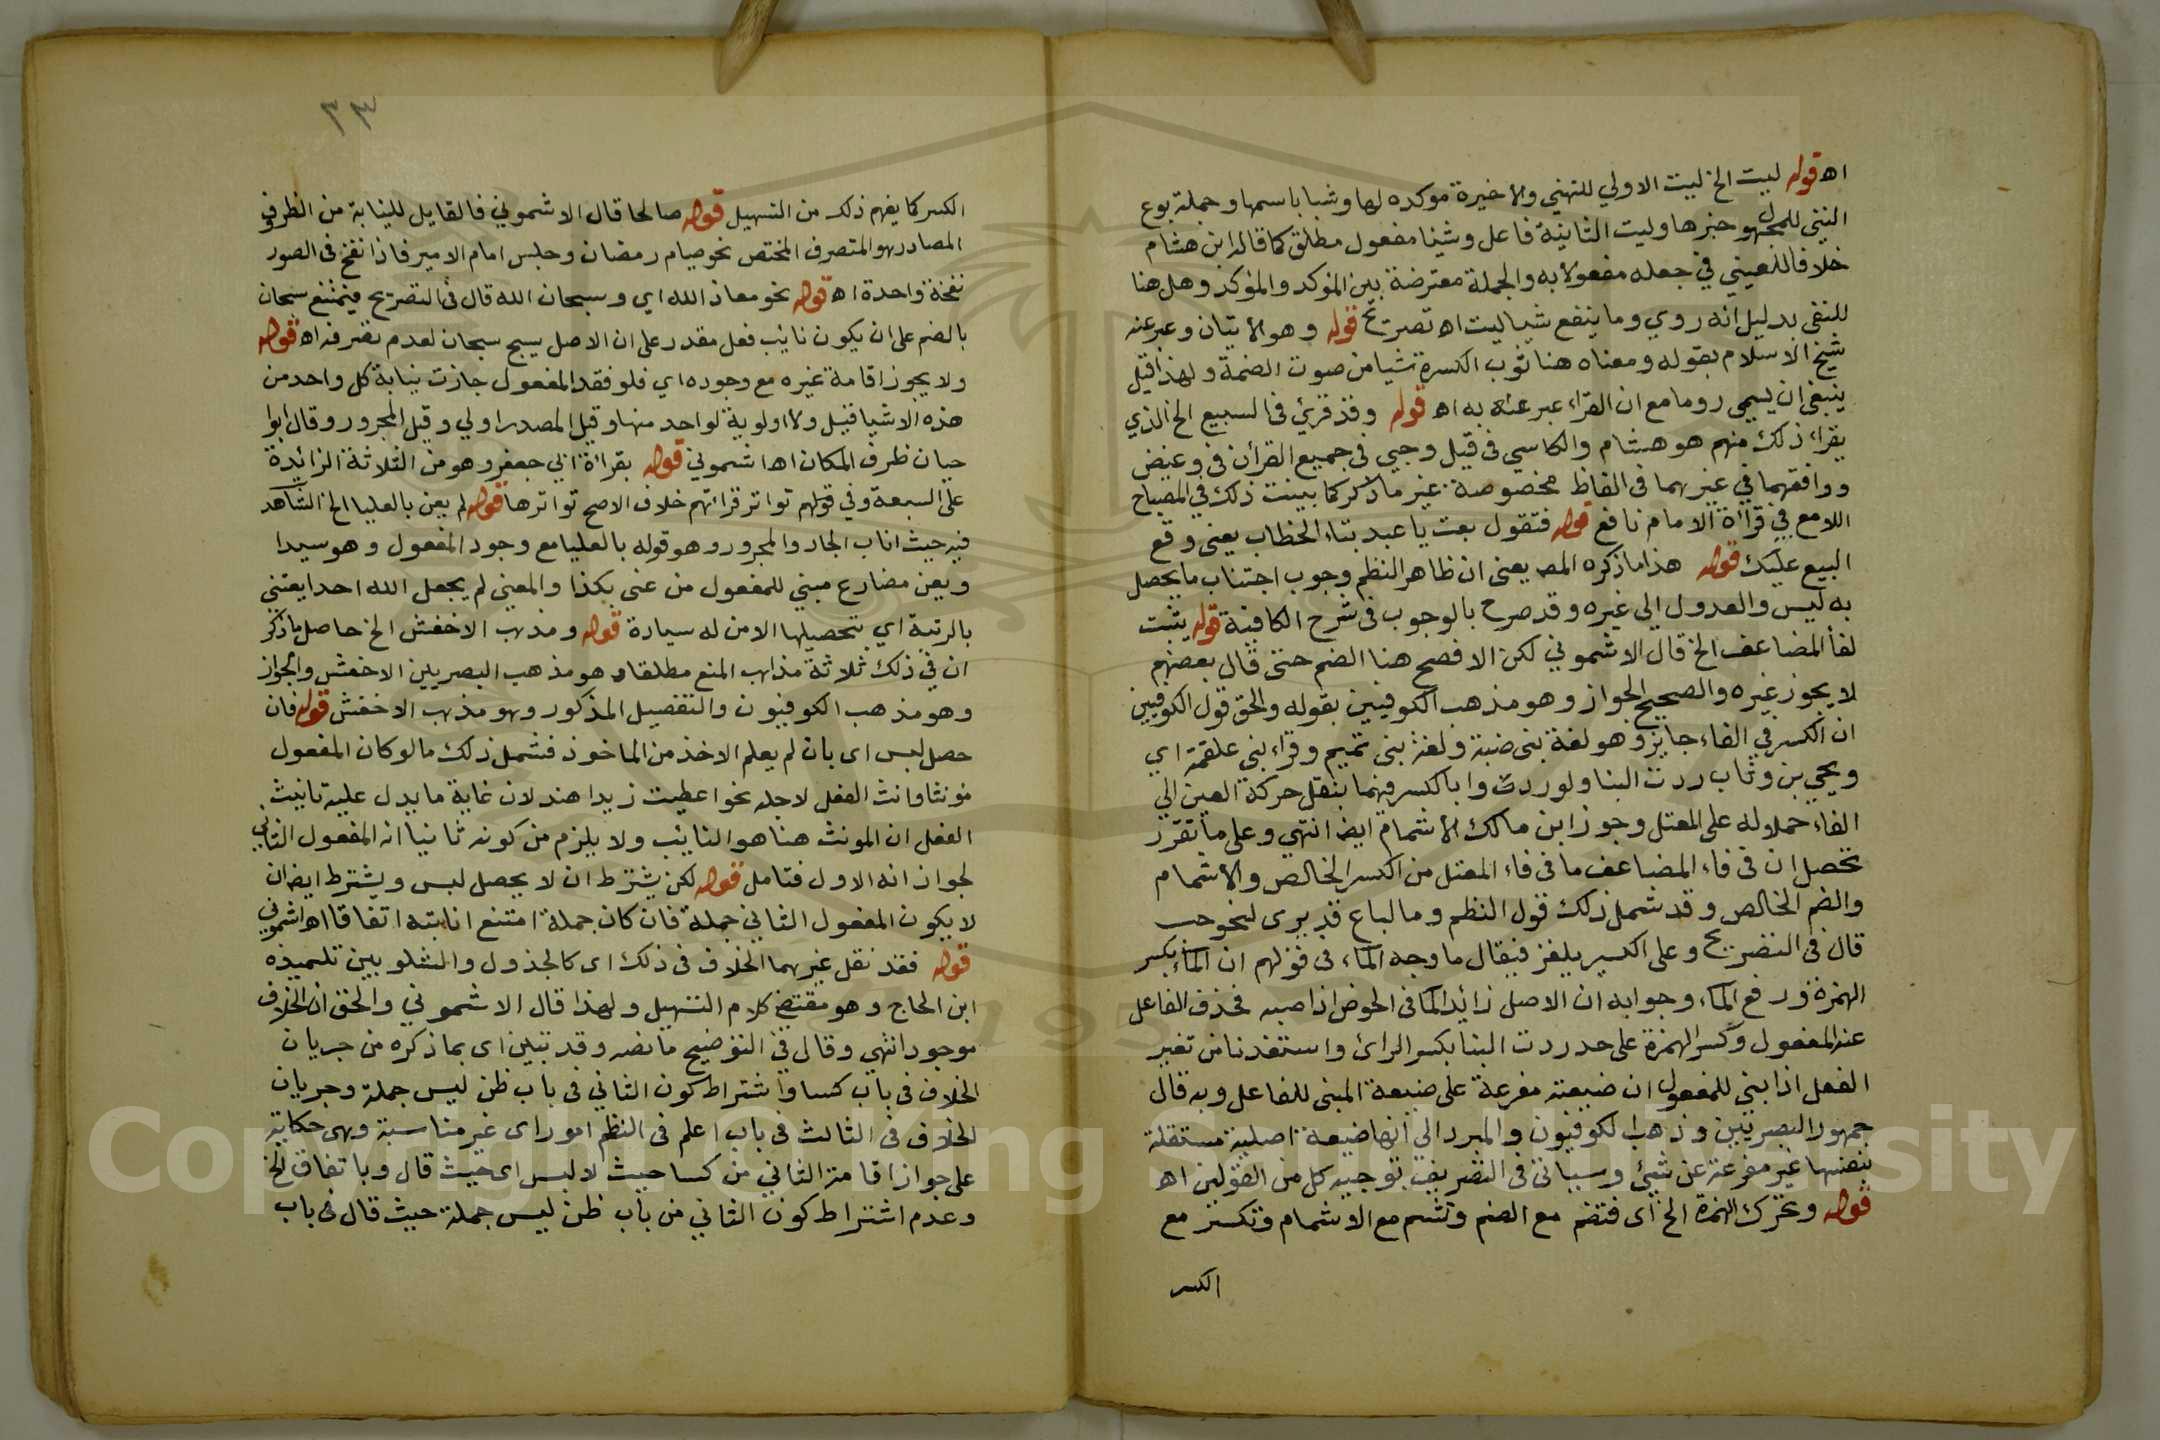 اه قوله ليت الخ ليت الاولي للتمني والاخيرة موكده لها وشبابا اسمها وجملة بوع
النبي للمجهول خبرها وليت الثانية فاعل وشيئا مفعول مطلق كما قاله ابن هشام
خلافا للعيني في جعله مفعولا به والجملة معترضة بين الموكد والموكد وهل هنا
للنفي بدليل انه روي وما ينفع شيا ليت اه تصريح قوله وهو الاتيان وعبر عنه
شيخ الاسلام بقوله ومعناه هنا ثوب الكسرة شيا من صوت الضمة ولهذا قيل
ينبغي ان يسمى روما مع ان القراء عبر عنه به اه قوله وقد قرئ في السبع الخ الذي
يقراء ذلك منهم هو هشام والكاسي في قيل وجي في جميع القرآن في وغيض
ووافقهما في غيرهما في الفاظ مخصوصة غير ما ذكر كما بينت ذلك في المصباح
اللامع في قرآة الامام نافع قوله فتقول بعت يا عبد بتاء الخطاب يعنى وقع
البيع عليك قوله هذا ما ذكره المص يعنى ان ظاهر النظم وجوب اجتناب ما يحصل
به ليس والعدول الي غيره وقد صرح بالوجوب في شرح الكافية قوله يثبت
لفأ المضاعف الخ قال الاشموني لكن الافصح هنا الضم حتى قال بعضهم
لا يجوز غيره والصحيح الجواز وهو مذهب الكوفيين بقوله والحق قول الكوفيين
ان الكسر في الفاء جايز وهو لغة بنى ضبة ولغة بنى تميم وقراء بنى علقمة اي
ويحي بن وثاب ردت الينا ولو ردوا بالكسر فيهما بنقل حركة العين الي
الفاء حملا له على المعتل وجوز ابن مالك الاشمام ايضا انتهي وعلى ما تقرر
تحصل ان في فاء المضاعف ما في فاء المعتل من الكسر الخالص والاشمام
والضم الخالص وقد شمل ذلك قول النظم وما لباع قد يرى لنحو حب
قال في التصريح وعلى الكسر يلغز فيقال ما وجه الماء في قولهم ان الماء بكسر
الهمزة ورفع الماء وجوابه ان الاصل زائد الما في الحوض اذا صبه فحذف الفاعل
عند المفعول وكسر الهمزة على حد ردت الينا بكسر الرائ واستفدنا من تغير
الفعل اذا بنى للمفعول ان ضيعته مفرعة على صيغة المبنى للفاعل وبه قال
جمهور البصريين وذهب الكوفيون والمبرد الي انها صيغة اصلية مستقلة
بنفسها غير مفرعة عن شيئ وسياتى في التصريف توجيه كل من القولين اه
قوله وتحرك الهمزة الخ اى فتضم مع الضم وتشم مع الاشمام وتكسر مع
الكسر
٣٣
الكسر كما يفهم ذلك من التسهيل قوله صالحا قال الاشموني فالقابل للنيابة من الظرف
المصادر هو المتصرف المختص نحو صيام رمضان وجلس امام الامير فاذا نفخ في الصور
نفخة واحدة اه قوله نحو معاذ الله اي وسبحان الله قال في التصريح فيمتنع سبحان
بالضم على ان يكون نايب فعل مقدر على ان الاصل يسبح سبحان لعدم تصرفه اه قوله
ولا يجوز اقامة غيره مع وجوده اي فلو فقد المفعول جازت نيابة كل واحد من
هذه الاشيا قيل ولا اولوية لواحد منها وقيل المصدر اولي وقيل المجرور وقال ابوا
حيان ظرف المكان اه اشموني قوله بقراءة ابي جعفر وهو من الثلاثة الزائدة
على السبعة وفي قولهم تواتر قرائتهم خلاف الاصح تواترها قوله لم يعن بالعليا الخ الشاهد
فيه حيث اناب الجار والمجرور وهو قوله بالعليا مع وجود المفعول وهو سيدا
ويعن مضارع مبني للمفعول من عنى بكذا والمعنى لم يجعل الله احدا يعتني
بالرتبة اي بتحصيلها الا من له سيادة قوله ومذهب الاخفش الخ حاصل ما ذكر
ان في ذلك ثلاثة مذاهب المنع مطلقا وهو مذهب البصريين الاخفش والجواز
وهو مذهب الكوفيون والتفصيل المذكور وهو مذهب الاخفش قوله فان
حصل لبس اى بان لم يعلم الاخذ من الماخوذ فشمل ذلك ما لو كان المفعول
مونثا وانث الفعل لاجله نحو اعطيت زيدا هند لان غاية ما يدل عليه تانيث
الفعل ان المونث هنا هو النايب ولا يلزم من كونه ثانيا انه المفعول الثاني
لجواز انه الاول فتامل قوله لكن يشترط ان لا يحصل لبس ويشترط ايضا ان
لا يكون المفعول الثاني جملة فان كان جملة امتنع انابته اتفاقا اه اشموني
قوله فقد نقل غيرهما الخلاف في ذلك اى كالجذول والشلوبين تلميذه
ابن الحاج وهو مقتضى كلام التسهيل ولهذا قال الاشموني والحق ان الخلاف
موجود انتهي وقال في التوضيح ما نصه وقد تبين اى بما ذكره من جريان
الخلاف في باب كسا واشتراط كون الثاني في باب ظن ليس جملة وجريان
الخلاف في الثالث في باب اعلم في النظم امور اى غير مناسبة وهى حكاية
على جواز اقامة الثاني من كسا حيث لا لبس اى حيث قال وباتفاق الخ
وعدم اشتراط كون الثاني من باب ظن ليس جملة حيث قال في باب
Copyright © King Saud University